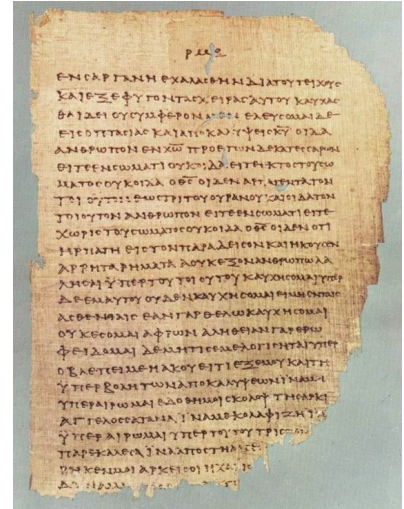 ΕΝ ϹΑΡΓΑΝΗ ΕΧΑΛΑϹΘΗΝ ΔΙΑ ΤΟΥ ΤΕΙΧΟΥϹ
ΚΑΙ ΕΞΕΦΥΓΟΝ ΤΑϹ ΧΕΙΡΑϹ ΑΥΤΟΥ ΚΑΥΧΑϹ
ΘΑΙ ΔΕΙ ΟΥ ϹΥΜΦΕΡΟΝ ΜΕΝ ΕΛΕΥϹΟΜΑΙ ΔΕ
ΕΙϹ ΟΠΤΑϹΙΑϹ ΚΑΙ ΑΠΟΚΑΛΥΨΕΙϹ Κ̅Υ̅ ΟΙΔΑ
ΑΝΘΡΩΠΟΝ ΕΝ Χ̅Ω̅ ΠΡΟ ΕΤΩΝ ΔΕΚΑΤΕϹϹΑΡΩΝ
ΕΙΤΕ ΕΝ ϹΩΜΑΤΙ ΟΥΚ ΟΙΔΑ ΕΙΤΕ ΕΚΤΟϹ ΤΟΥ ϹΩ
ΜΑΤΟϹ ΟΥΚ ΟΙΔΑ Ο Θ̅Ϲ̅ ΟΙΔΕΝ ΑΡΠΑΓΕΝΤΑ ΤΟΝ
ΤΟΙΟΥΤΟΝ ΕΩϹ ΤΡΙΤΟΥ ΟΥΡΑΝΟΥ ΚΑΙ ΟΙΔΑ ΤΟΝ
ΤΟΙΟΥΤΟΝ ΑΝΘΡΩΠΟΝ ΕΙΤΕ ΕΝ ϹΩΜΑΤΙ ΕΙΤΕ
ΧΩΡΙϹ ΤΟΥ ϹΩΜΑΤΟϹ ΟΥΚ ΟΙΔΑ Ο Θ̅Ϲ̅ ΟΙΔΕΝ ΟΤΙ
ΗΡΠΑΓΗ ΕΙϹ ΤΟΝ ΠΑΡΑΔΕΙϹΟΝ ΚΑΙ ΗΚΟΥϹΕΝ
ΑΡΡΗΤΑ ΡΗΜΑΤΑ Α ΟΥΚ ΕΞΟΝ ΑΝΘΡΩΠΩ ΛΑ
ΛΗϹΑΙ ΫΠΕΡ ΤΟΥ ΤΟΙΟΥΤΟΥ ΚΑΥΧΗϹΟΜΑΙ ΥΠΕΡ
ΔΕ ΕΜΑΥΤΟΥ ΟΥΔΕΝ ΚΑΥΧΗϹΟΜΑΙ ΕΙ ΜΗ ΕΝ ΤΑΙϹ
ΑϹΘΕΝΕΙΑΙϹ ΕΑΝ ΓΑΡ ΘΕΛΩ ΚΑΥΧΗϹΟΜΑΙ
ΟΥΚ ΕϹΟΜΑΙ ΑΦΡΩΝ ΑΛΗΘΕΙΑΝ ΓΑΡ ΕΡΩ
ΦΕΙΔΟΜΑΙ ΔΕ ΜΗ ΤΙϹ ΕΜΕ ΛΟΓΙϹΗΤΑΙ ΥΠΕΡ
Ο ΒΛΕΠΕΙ ΜΕ Η ΑΚΟΥΕΙ ΤΙ ΕΞ ΕΜΟΥ ΚΑΙ ΤΗ
ΫΠΕΡΒΟΛΗ ΤΩΝ ΑΠΟΚΑΛΥΨΕΩΝ ΪΝΑ ΜΗ
ΥΠΕΡΑΙΡΩΜΑΙ ΕΔΟΘΗ ΜΟΙ ϹΚΟΛΟΨ ΤΗ ϹΑΡΚΙ
ΑΓΓΕΛΟϹ ϹΑΤΑΝΑ ΪΝΑ ΜΕ ΚΟΛΑΦΙΖΗ ΪΝΑ
ΫΠΕΡΑΙΡΩΜΑΙ ΥΠΕΡ ΤΟΥΤΟΥ ΤΡΙϹ
ΠΑΡΕΚΑΛΕϹΑ ΪΝΑ ΑΠΟϹΤΗ
ΚΕΝ ΜΟΙ ΑΡΚΕΙ ϹΟΙ Η ΧΑΡΙϹ